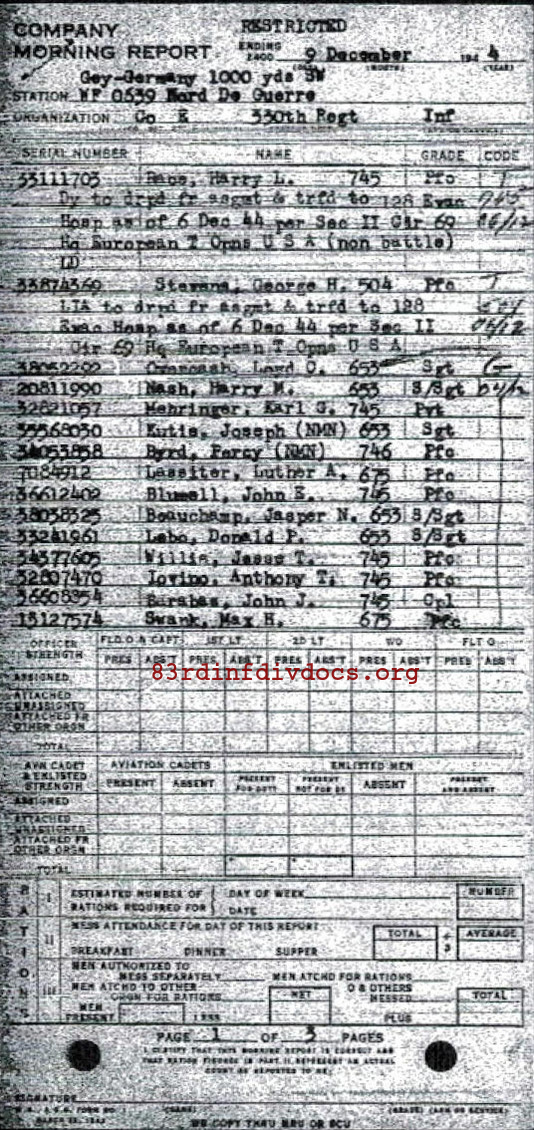 COMPANY
MORNING REPORT
RESTRICTED
ENDING 2400 9 December 1944
(DAY) (MONTH) (YEAR)
Gey-Germany 1000 yds SW
STATION WF 0539 Nord De Guerre
ORGANIZATION Co E 330th Regt Inf
SERIAL NUMBER NAME GRADE CODE
33111703 Harry L. 745 Pfc
Dy to drpd fr asgmt & trfd to 128 Evac
Hosp as of 6 Dec 44 per Sec II Cir 69
Hq European T Opns U S A (non battle)
LD
33874360 Stevens, George H. 504 Pfc T
LIA to drpd fr asgmt & trfd to 128
Evac Hosp as of 6 Dec 44 per Sec II
Cir 69 Hq European T Opns U S A
38052202 Lord O. 653 Sgt
20811990 Nash, Harry M. 653 S/Sgt
32821057 Mehringer, Karl G. 745 Pvt
35568030 Kutis, Joseph (NMN) 653 Sgt
34053858 Byrd, Percy (NMN) 746 Pfc
7084912 Lassiter, Luther A. 675 Pfc
36612402 Blumell, John E. 745 Pfc
38038325 Beauchamp, Jasper N. 653 S/Sgt
33241961 Labo, Donald P. 653 S/Sgt
34377605 Willis, Jesse T. 745 Pfc
32807470 Iovino, Anthony T. 745 Pfc
36608354 Barabas, John J. 745 Cpl
15127574 Swank, Max H. 675 Pfc
OFFICER STRENGTH FLD O & CAPT 1ST LT 2D LT WO FLT O
PRES ABS'T PRES ABS'T PRES ABS'T PRES ABS'T PRES ABS'T
83rdinfdivdocs.org
ASSIGNED
ATTACHED UNASSIGNED
ATTACHED FR OTHER ORGN
TOTAL
AVN CADET & ENLISTED STRENGTH AVIATION CADETS ENLISTED MEN
PRESENT ABSENT PRESENT FOR DUTY PRESENT NOT FOR DY ABSENT PRESENT AND ABSENT
ASSIGNED
ATTACHED UNASSIGNED
ATTACHED FR OTHER ORGN
TOTAL
RATIONS
I ESTIMATED NUMBER OF RATIONS REQUIRED FOR DAY OF WEEK DATE NUMBER
II MESS ATTENDANCE FOR DAY OF THIS REPORT TOTAL ÷ 3 AVERAGE
BREAKFAST DINNER SUPPER
III MEN AUTHORIZED TO MESS SEPARATELY MEN ATCHD FOR RATIONS
MEN ATCHD TO OTHER ORGN FOR RATIONS NET O & OTHERS MESSED TOTAL
MEN PRESENT LESS PLUS
PAGE 1 OF 3 PAGES
I CERTIFY THAT THIS MORNING REPORT IS CORRECT AND
THAT RATION FIGURES IN PART II REPRESENT AN ACTUAL
COUNT AS REPORTED TO ME:
SIGNATURE
(NAME) (GRADE) (ARM OR SERVICE)
COPY THRU MRU OR SCU